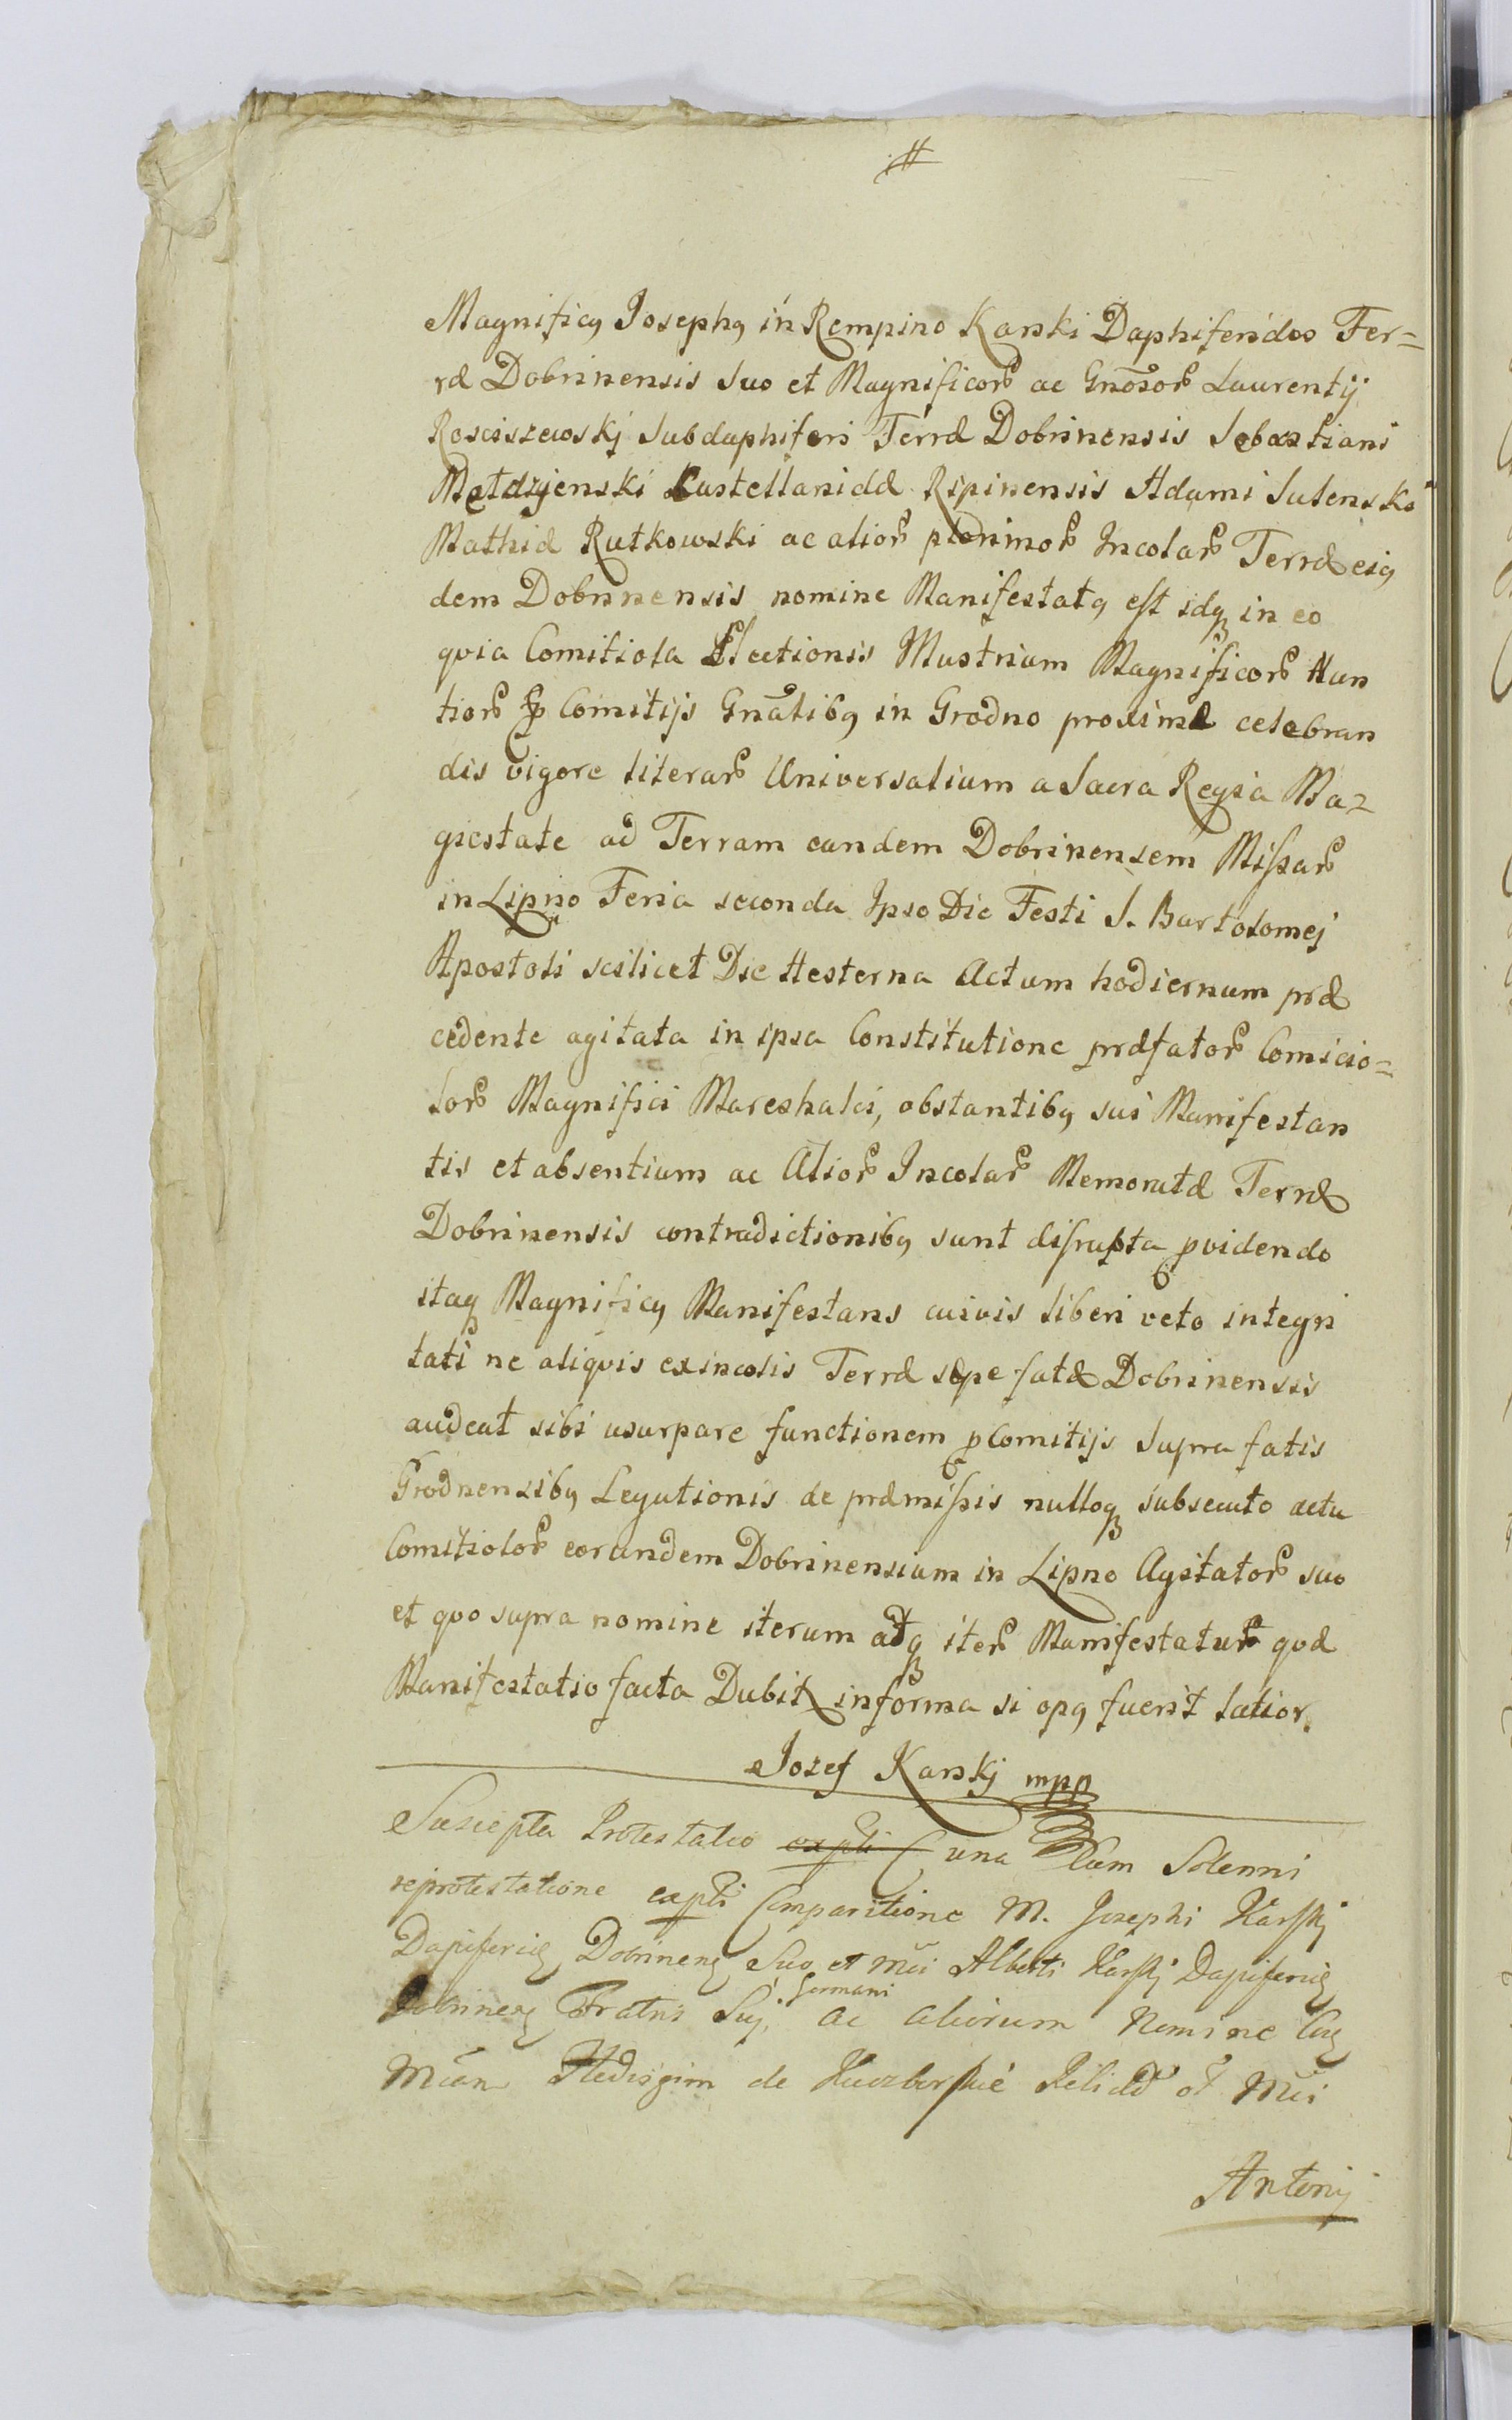 #
Magnificꝯ Josephꝯ in Rempino Karski Daphiferides Ter=
ræ Dobrinensis suo et Magnificoꝝ ac Gnōsoꝝ Laurentij
Rosciszewskj Subdaphiferi Terræ Dobrinensis Sebastiani
Metdzjenski Castellanidæ Ripinensis Adami Sutenski
Mathiæ Rutkowski ac alioꝝ plorimoꝝ Incolaꝝ Terræ eiꝯ
dem Dobrinensis nomine Manifestatꝯ est idqꝫ in eo
qvia Comitiola Electionis Illustrium Magnificoꝝ Nun
tioꝝ ꝓ Comitijs Gnāalibꝯ in Grodno proxime celebran
dis vigore literaꝝ Universalium a Sacra Regia Ma=
giestate ad Terram eandem Dobrinensem Missaꝝ
in Lipno Feria secunda Ipso Die Festi S. Bartolomej
Apostoli scilicet Die Hesterna Actum hodiernum præ
cedente agitata in ipsa Constitutione præfatoꝝ Comicio=
loꝝ Magnifici Mareshalci, obstantibꝯ sui Manifestan
tis et absentium ac Alioꝝ Incolaꝝ Memoratæ Terræ
Dobrinensis contradictionibꝯ sunt disrupta ꝓvidendo
itaqꝫ Magnificꝯ Manifestans cuivis liberi veto integri
tati ne aliqvis ex incolis Terræ sæpe fatæ Dobrinensis
audeat sibi usurpare functionem ꝓ Comitijs supra fatis
Grodnensibꝯ Legationis de præmissis nulloqꝫ subsecuto actu
Comitioloꝝ eorundem Dobrinensium in Lipno Agitatoꝝ suo
et qvo supra nomine iterum atqꝫ iteꝝ Manifestatur qvæ
Manifestatio facta Dabit in forma si opꝯ fuerit latior.
Jozef Karskj mpp
Suscepta Protestatio expti una Cum Solenni
reprotestatione expti Comparitione M. Josephi Karskj
Dapiferid Dobrinens Suo et Mci Alberti Karskj Dapiferid
Dobrinens Fratris Sui Germani ac aliorum Nomine
Antonij